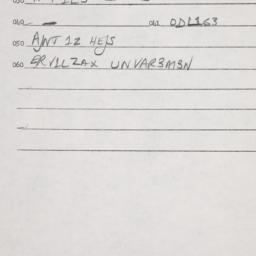 040 — 041 ODL163
050 AJNT 12 HEJS
060 SRV1LZAX UNVAR3M3N